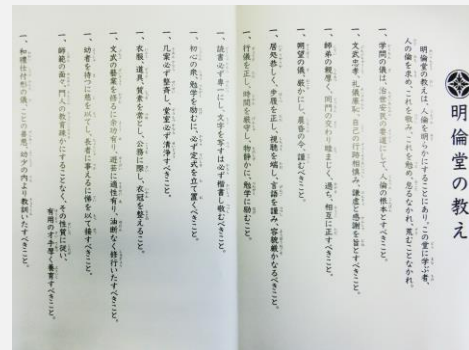 明倫堂の教え
明倫堂の教えは、人倫を明らかにすることにあり。この堂に学ぶ者、
人の倫を求め、これを敬み、これを勉め、怠るなかれ、荒むことなかれ。
一、学問の儀は、治世安民の要道にして、人倫の根本とすべきこと。
一、文武忠孝、礼儀廉恥、自己の行跡相慎み、謙虚と感謝を旨とすべきこと。
一、師弟の親厚く、同門の交わり睦まじく、過ち、相互に正すべきこと。
一、朔望の儀、厳かにし、晨昏の令、謹むべきこと。
一、居処恭しく、歩履を正し、視聴を端し、言語を謹み、容貌厳かなるべきこと。
一、行儀を正し、時間を厳守し、物静かに、勉学に励むこと。
一、読書必ず専一にし、文字を写すは必ず楷書し敬むべきこと。
一、初心の輩、勉学を励むに、必ず定式を立て置くべきこと。
一、几案必ず整斉し、堂室必ず清浄すべきこと。
一、衣服、道具、質素を常とし、公務に際し、衣冠を整えること。
一、文武の芸業を修るに余功有り、遊芸に適性有り、油断なく修行いたすべきこと。
一、幼者を待つに慈を以てし、長者に事えるに悌を以て接すべきこと。
一、師範の面々、門人の教育疎かにすることなく、その性質に従い、
有用のすき厚く養育すべきこと。
一、和禮仕付形の儀、ことの善悪、幼少の内より教諭いたすべきこと。